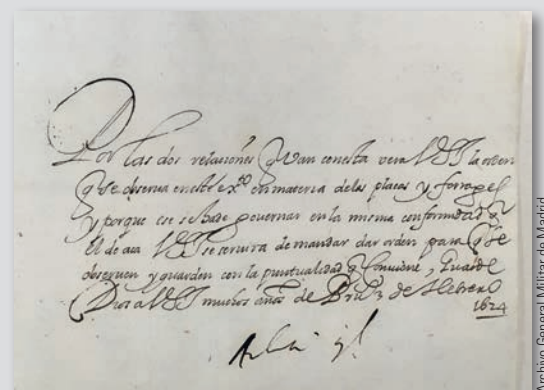 Por las dos relaciones q̃ van con esta vera VSI la orden
q̃ se observa en este ex.to en materia de las placas y forrages
y porque ese se ha de governar en la misma conformidad q̃
el de aca VSI se servira de mandar dar orden para q̃ se
observen y guarden con la puntualidad q̃ conviene, Guarde
Dios a VSI muchos años de de Hebrero
1624
Archivo General Militar de Madrid